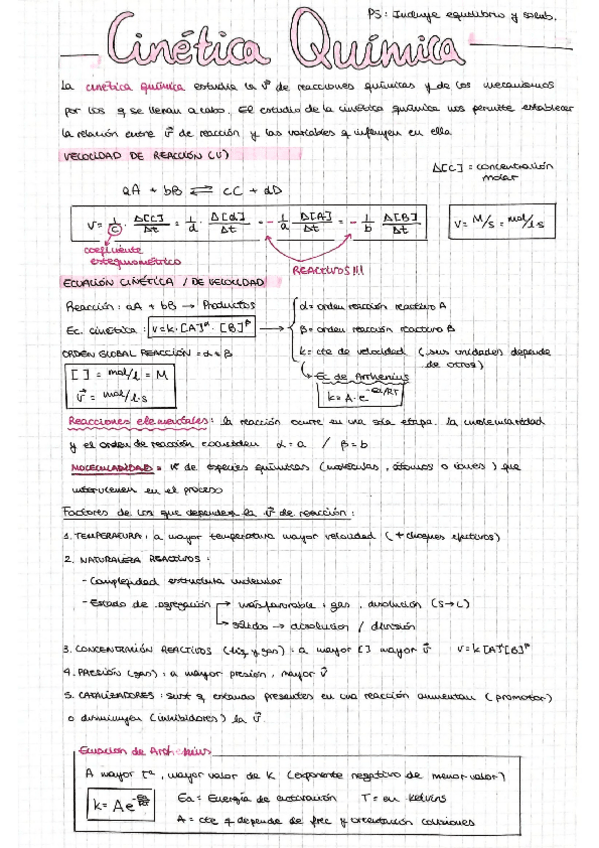 PS: Incluye equilibrio y solub.
Cinética Química
La cinética química estudia la v⃗ de reacciones químicas y de los mecanismos
por los q se llevan a cabo. El estudio de la cinética química nos permite establecer
la relación entre v⃗ de reacción y las variables q influyen en ella
VELOCIDAD DE REACCIÓN (V)
Δ[C] = concentración
molar
aA + bB ⇌ cC + dD
V = 1/c · Δ[C]/Δt = 1/d · Δ[d]/Δt = - 1/a Δ[A]/Δt = - 1/b Δ[B]/Δt
V = M/s = mol/l·s
coeficiente
estequiométrico
REACTIVOS!!!
ECUACIÓN CINÉTICA / DE VELOCIDAD
Reacción: aA + bB → Productos
α = orden reacción reactivo A
Ec. cinética: V = k·[A]^α · [B]^β
β = orden reacción reactivo B
ORDEN GLOBAL REACCIÓN = α + β
k = cte de velocidad (sus unidades depende
de otros)
[ ] = mol/l = M
v⃗ = mol/l·s
Ec de Arrhenius
k = A·e^-Ea/RT
Reacciones elementales: la reacción ocurre en una sola etapa. la molecularidad
y el orden de reacción coinciden α = a / β = b
MOLECULARIDAD = nº de especies químicas (moléculas, átomos o iones) que
intervienen en el proceso
Factores de los que depende la v⃗ de reacción:
1. TEMPERATURA: a mayor temperatura mayor velocidad (+ choques efectivos)
2. NATURALEZA REACTIVOS:
- Complejidad estructura molecular
- Estado de agregación → más favorable: gas, disolución (S→L)
→ sólidos → disolución / división
3. CONCENTRACIÓN REACTIVOS (líq y gas): a mayor [] mayor v⃗ V = k[A]^α[B]^β
4. PRESIÓN (gas): a mayor presión, mayor v⃗
5. CATALIZADORES: sust q estando presentes en una reacción aumentan (promotor)
o disminuyen (inhibidores) la v⃗.
Ecuación de Arrhenius
A mayor tª, mayor valor de K (exponente negativo de menor valor)
k = Ae^-Ea/RT
Ea = Energía de activación T = en kelvins
A = cte q depende de frec y orientación colisiones